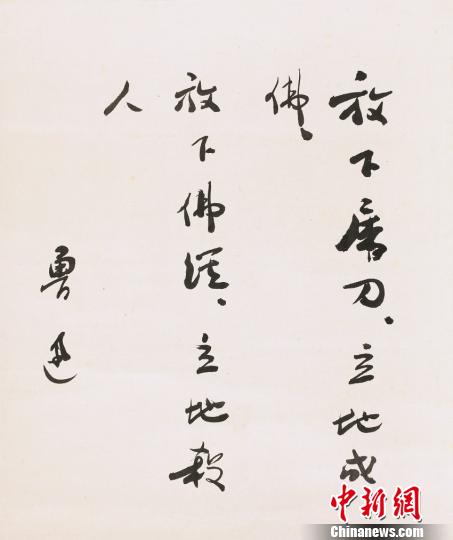 放下屠刀、立地成
佛、
放下佛経、立地殺
人
魯迅
中新網
Chinanews.com